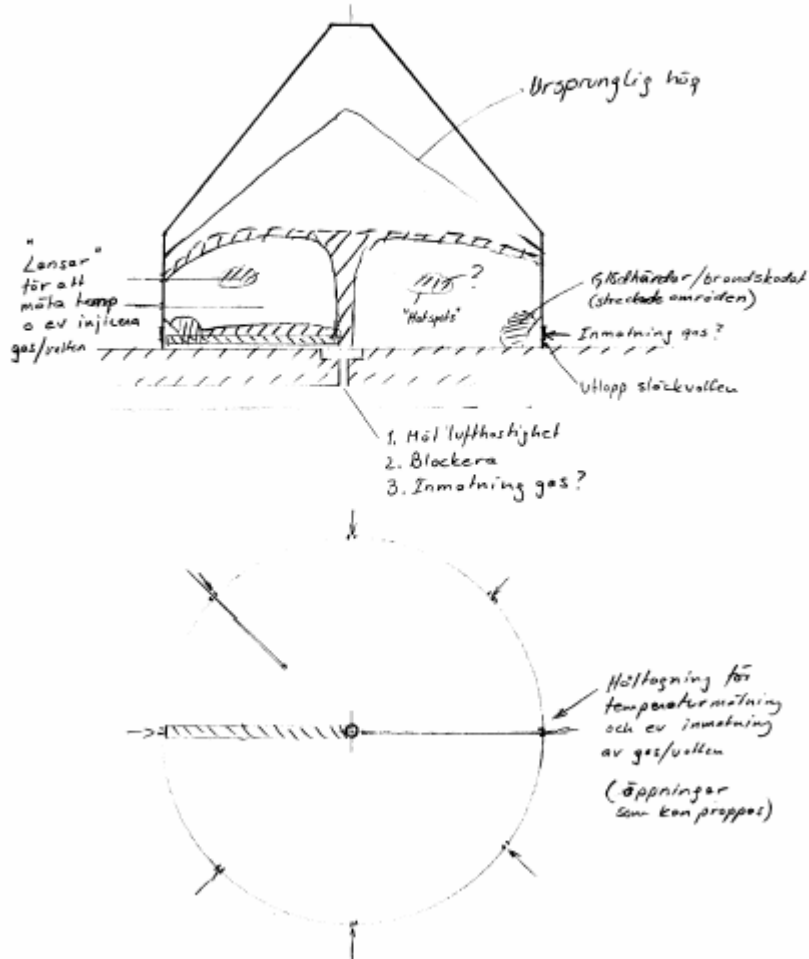 Ursprunglig hög
"Lansar"
för att
mäta temp
o ev injicera
gas/vatten
?
"Hotspots"
Glödhärdar/brandskadat
(streckade områden)
Inmatning gas?
Utlopp släckvatten
1. Mät lufthastighet
2. Blockera
3. Inmatning gas?
Håltagning för
temperaturmätning
och ev inmatning
av gas/vatten
(öppningar
som kan proppas)